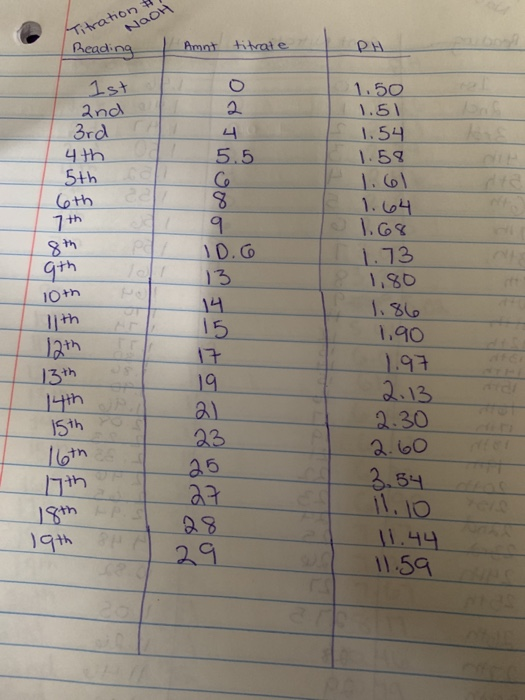 Titration #1
NaOH
Reading Amnt titrate PH
1st 0 1.50
2nd 2 1.51
3rd 4 1.54
4th 5.5 1.58
5th 6 1.61
6th 8 1.64
7th 9 1.68
8th 10.6 1.73
9th 13 1.80
10th 14 1.86
11th 15 1.90
12th 17 1.97
13th 19 2.13
14th 21 2.30
15th 23 2.60
16th 25 3.54
17th 27 11.10
18th 28 11.44
19th 29 11.59